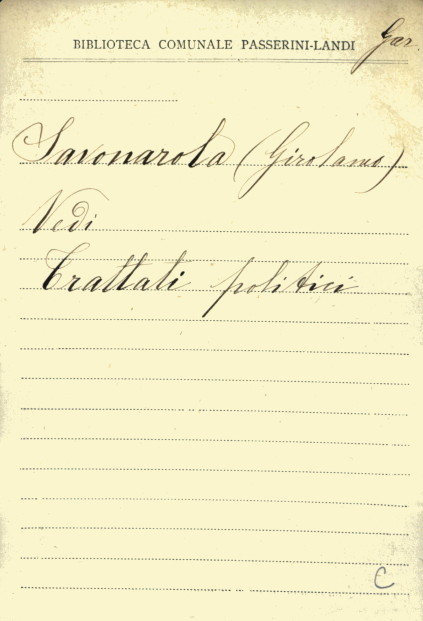 BIBLIOTECA COMUNALE PASSERINI-LANDI
Gar
Savonarola (Girolamo)
Vedi
Trattati politici
C